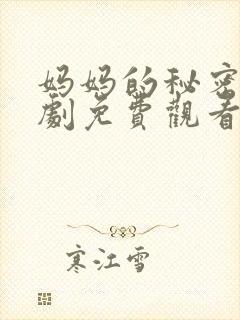 妈妈的秘密
劇免費觀看
寒江雪